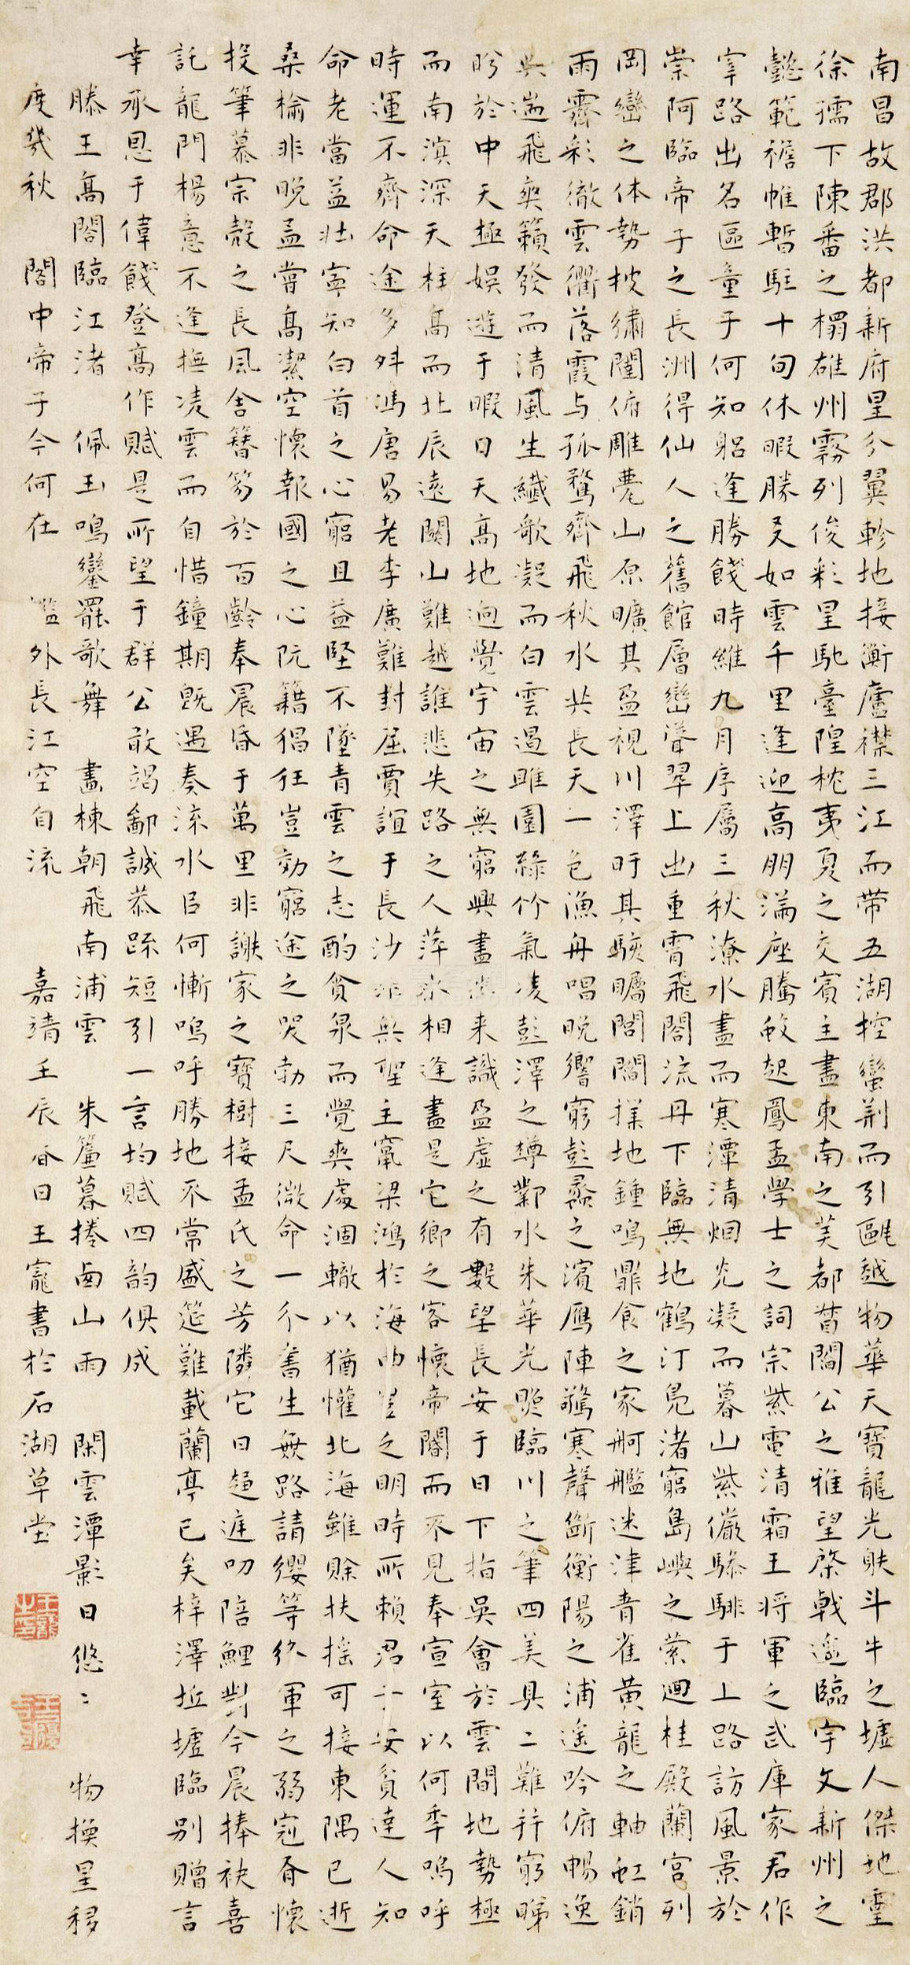 南昌故郡洪都新府星分翼軫地接衡廬襟三江而帶五湖控蠻荆而引甌越物華天寶龍光射斗牛之墟人傑地靈
徐孺下陳蕃之榻雄州霧列俊彩星馳臺隍枕夷夏之交賓主盡東南之美都督閻公之雅望棨戟遙臨宇文新州之
懿範襜帷暫駐十旬休暇勝友如雲千里逢迎高朋滿座騰蛟起鳳孟學士之詞宗紫電清霜王將軍之武庫家君作
宰路出名區童子何知躬逢勝餞時維九月序屬三秋潦水盡而寒潭清烟光凝而暮山紫儼驂騑于上路訪風景於
崇阿臨帝子之長洲得仙人之舊館層巒聳翠上出重霄飛閣流丹下臨無地鶴汀鳧渚窮島嶼之縈迴桂殿蘭宮列
岡巒之体勢披繡闥俯雕甍山原曠其盈視川澤盱其駭矚閭閻撲地鍾鳴鼎食之家舸艦迷津青雀黃龍之軸虹銷
雨霽彩徹雲衢落霞与孤鶩齊飛秋水共長天一色漁舟唱晚響窮彭蠡之濱鴈陣驚寒聲斷衡陽之浦遙吟俯暢逸
興遄飛爽籟發而清風生纖歌凝而白雲遏睢園綠竹氣凌彭澤之樽鄴水朱華光照臨川之筆四美具二難并窮睇
眄於中天極娛遊于暇日天高地迥覺宇宙之無窮興盡悲来識盈虛之有數望長安于日下指吳會於雲間地勢極
而南溟深天柱高而北辰遠關山難越誰悲失路之人萍水相逢盡是它鄉之客懷帝閽而不見奉宣室以何年嗚呼
時運不齊命途多舛馮唐易老李廣難封屈賈誼于長沙非無聖主竄梁鴻於海曲豈乏明時所賴君子安貧達人知
命老當益壯寧知白首之心窮且益堅不墜青雲之志酌貪泉而覺爽處涸轍以猶懽北海雖賒扶搖可接東隅已逝
桑榆非晚孟嘗高潔空懷報國之心阮籍猖狂豈効窮途之哭勃三尺微命一介書生無路請纓等終軍之弱冠有懷
投筆慕宗愨之長風舍簪笏於百齡奉晨昏于萬里非謝家之寶樹接孟氏之芳隣它日趨庭叨陪鯉對今晨捧袂喜
託龍門楊意不逢撫凌雲而自惜鐘期既遇奏流水以何慚嗚呼勝地不常盛筵難載蘭亭已矣梓澤坵墟臨別贈言
幸承恩于偉餞登高作賦是所望于群公敢竭鄙誠恭疏短引一言均賦四韵俱成
滕王高閣臨江渚 佩玉鳴鑾罷歌舞 畫棟朝飛南浦雲 朱簾暮捲西山雨 閑雲潭影日悠〻 物換星移
度幾秋 閣中帝子今何在 檻外長江空自流 嘉靖壬辰春日王寵書於石湖草堂